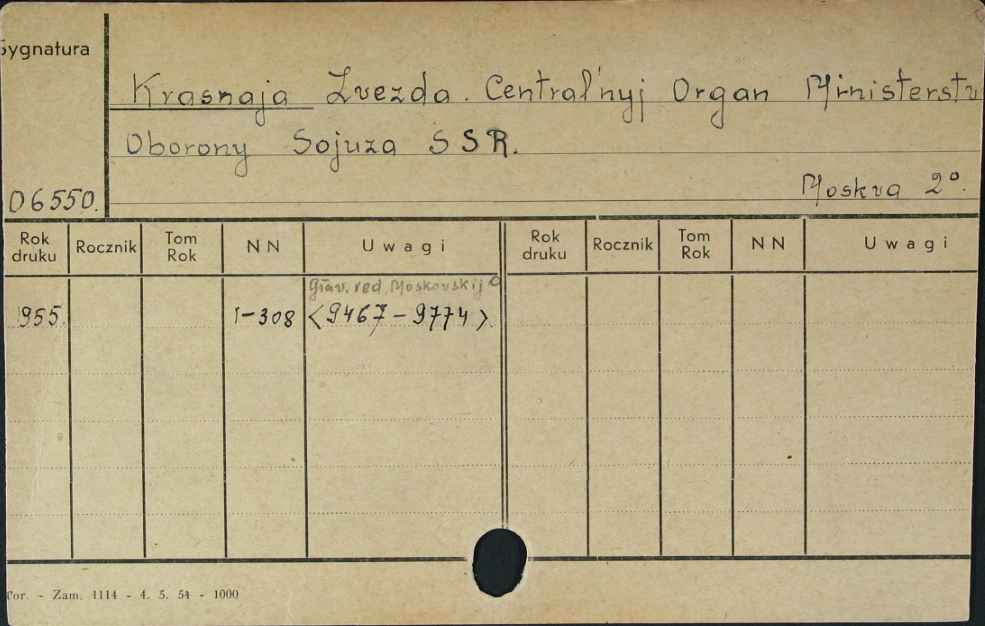 Sygnatura
Krasnaja Zvezda. Central'nyj Organ Ministerstv
Oborony Sojuza SSR.
06550.
Moskva 2°.
Rok druku Rocznik Tom Rok NN Uwagi Rok druku Rocznik Tom Rok NN Uwagi
Glav. red. Moskovskij
955. 1-308 <9467-9774>.
Por. - Zam. 1114 - 4. 5. 54 - 1000